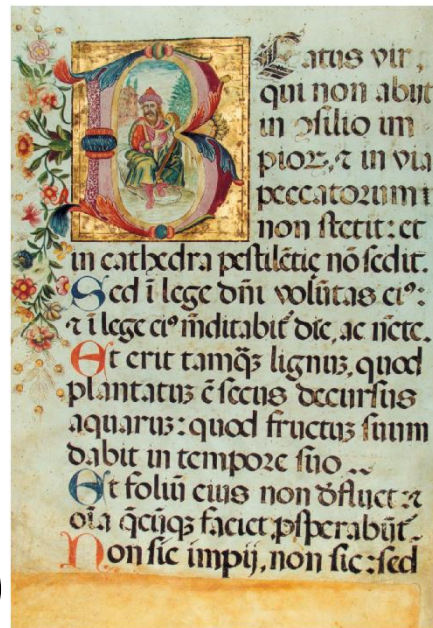 Beatus vir,
qui non abiit
in ↄsilio im
pioꝝ, ⁊ in via
peccatorum
non stetit: et
in cathedra pestilētie nō sedit.
Sed ī lege dn̄i volūtas eiꝰ:
⁊ ī lege eiꝰ meditabit᷑ die, ac nocte.
Et erit tamqꝫ lignuꝫ, quod
plantatuꝫ ē secus decursus
aquaruꝫ: quod fructuꝫ suum
dabit in tempore suo..
Et foliū eius non defluet: ⁊
oīa q̄cūqꝫ faciet ꝓsperabūt.
Non sic impij, non sic: sed